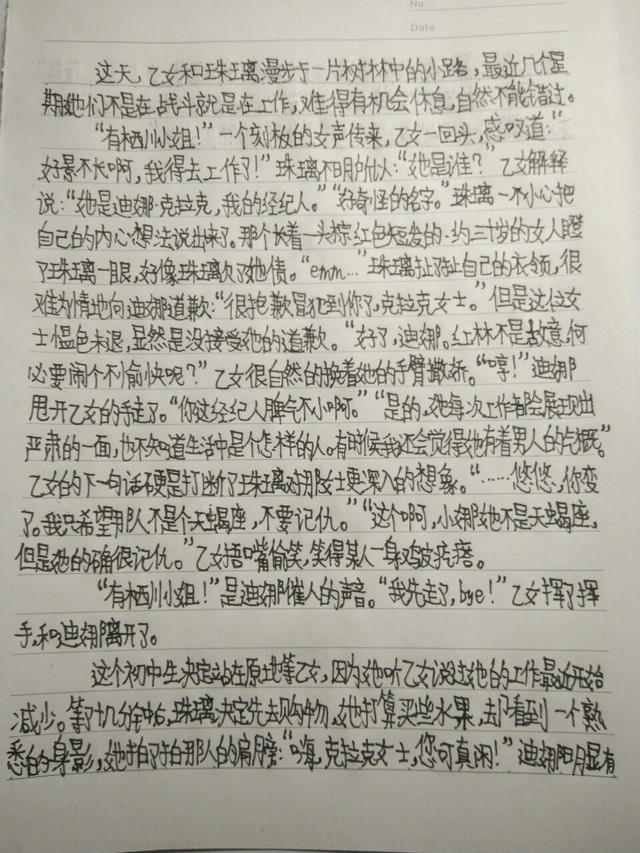 No
Date
这天，乙女和珠璃漫步于一片树林中的小路，最近几个星
期她们不是在战斗就是在工作，难得有机会休息，自然不能错过。
“有栖川小姐！”一个刻板的女声传来，乙女一回头，感叹道：“
好景不长啊，我得去工作了！”珠璃不明所以：“她是谁？”乙女解释
说：“她是迪娜·克拉克，我的经纪人。”“好奇怪的名字。”珠璃一不小心把
自己的内心想法说出来了。那个长着一头棕红色短发的·约三十岁的女人瞪
了珠璃一眼，好像珠璃欠了她债。“emm…”珠璃扯了扯自己的衣领，很
难为情地向迪娜道歉：“很抱歉冒犯到你了，克拉克女士。”但是这位女
士愠色未退，显然是没接受她的道歉。“好了，迪娜。红林不是故意，何
必要闹个不愉快呢？”乙女很自然的挽着她的手臂撒娇。“哼！”迪娜
甩开乙女的手走了。“你这经纪人脾气不小啊。”“是的，她每次工作都会展现出
严肃的一面，也不知道生活中是个怎样的人。有时候我还会觉得她有着男人的气概。”
乙女的下一句话不更是打断了珠璃对那女士更深入的想象。“……悠悠，你变
了。我只希望那人不是个天蝎座，不要记仇。”“这个啊，小娜她不是天蝎座，
但是她的确很记仇。”乙女捂嘴偷笑，笑得某人一身鸡皮疙瘩。
“有栖川小姐！”是迪娜催人的声音。“我先走了，bye！”乙女挥了挥
手，和迪娜离开了。
这个初中生决定站在原地等乙女，因为她听乙女说过她的工作最近开始
减少。等了十几分钟后，珠璃决定先去购物，她打算买些水果，却看到一个熟
悉的身影，她拍了拍那人的肩膀：“嗨，克拉克女士，您可真闲！”迪娜明显有